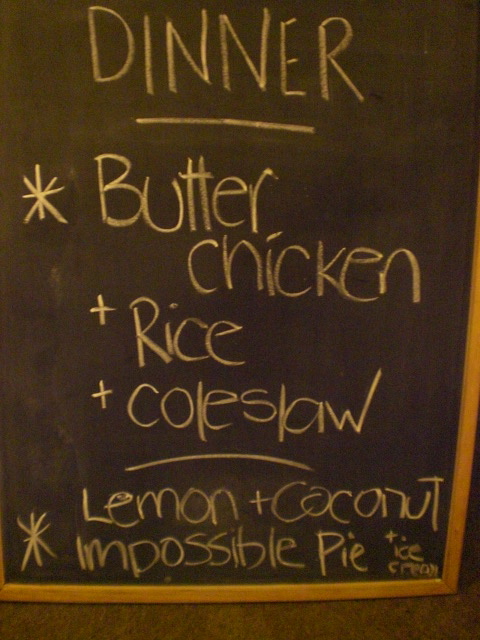 DINNER
* Butter
chicken
+ Rice
+ coleslaw
Lemon + Coconut
* Impossible Pie + ice
cream